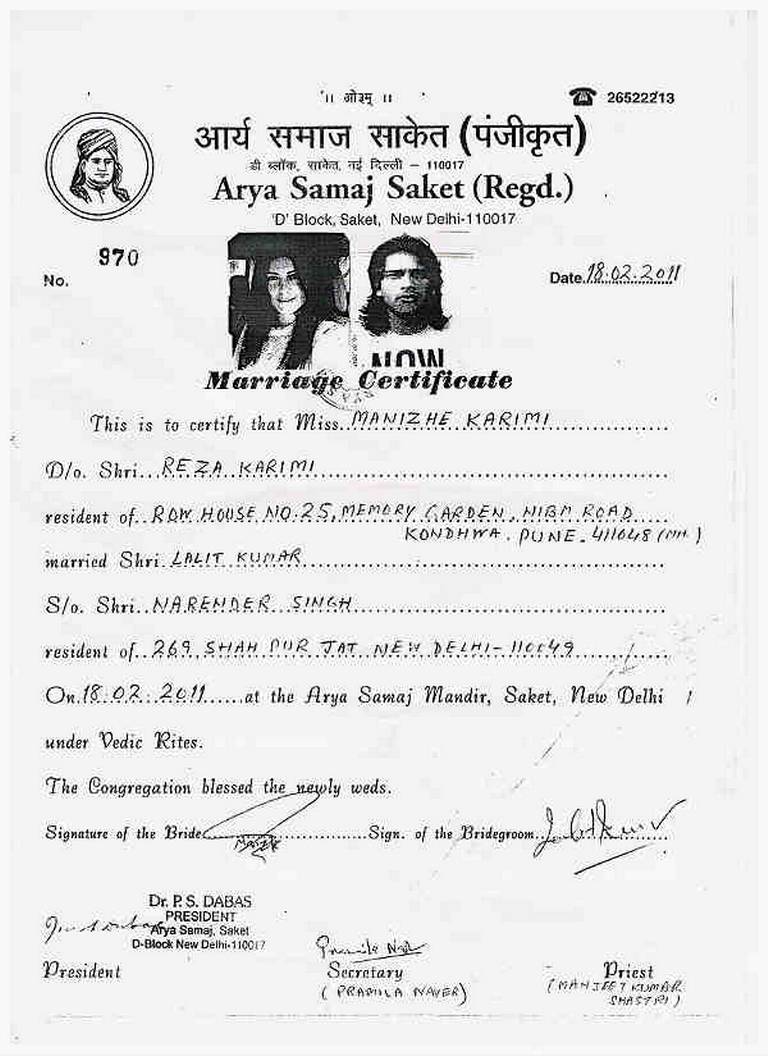 ।। ओ३म् ।।
26522213
आर्य समाज साकेत (पंजीकृत)
डी ब्लॉक, साकेत, नई दिल्ली – 110017
Arya Samaj Saket (Regd.)
'D' Block, Saket, New Delhi-110017
No. 970
Date 18.02.2011
NOW
Marriage Certificate
This is to certify that Miss MANIZHE KARIMI
D/o. Shri REZA KARIMI
resident of ROW HOUSE NO.25, MEMORY GARDEN, NIBM ROAD
KONDHWA. PUNE. 411048 (MH.)
married Shri LALIT KUMAR
S/o. Shri NARENDER SINGH
resident of 269, SHAH PUR JAT NEW DELHI-110049
On 18.02.2011 at the Arya Samaj Mandir, Saket, New Delhi
under Vedic Rites.
The Congregation blessed the newly weds.
Signature of the Bride Sign. of the Bridegroom
Dr. P.S. DABAS
PRESIDENT
Arya Samaj, Saket
D-Block New Delhi-110017
President Secretary Priest
(PRAMILA NAYER) (MANJEET KUMAR
SHASTRI)